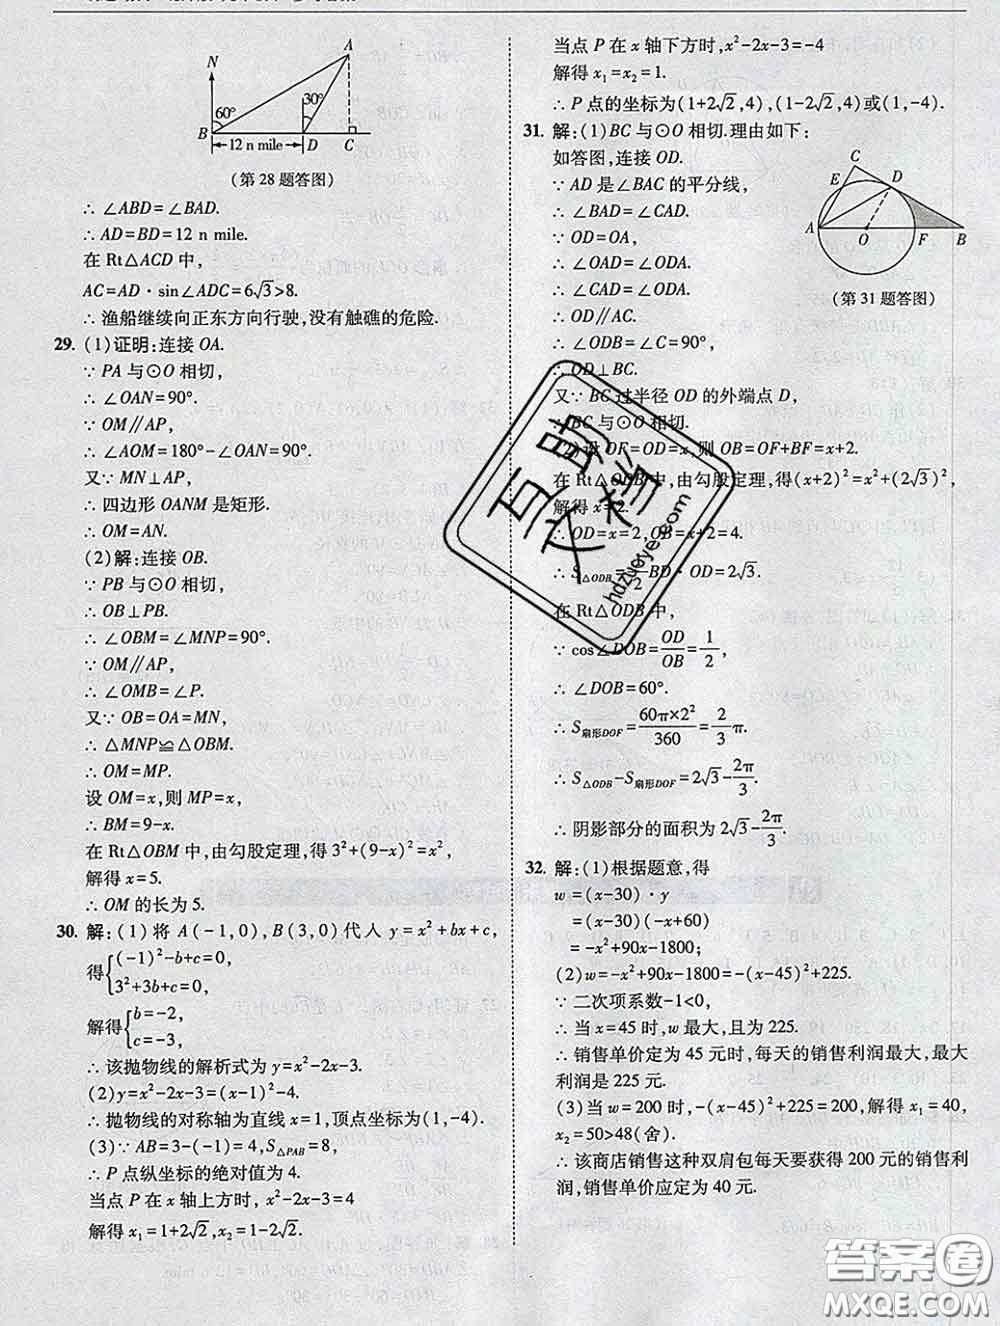 N
A
60°
30°
B
12 n mile
D
C
(第28题答图)
∴ ∠ABD=∠BAD.
∴ AD=BD=12 n mile.
在 Rt△ACD 中,
AC=AD·sin∠ADC=6√3>8.
∴ 渔船继续向正东方向行驶,没有触礁的危险.
29. (1)证明:连接 OA.
∵ PA 与⊙O 相切,
∴ ∠OAN=90°.
∵ OM∥AP,
∴ ∠AOM=180°-∠OAN=90°.
又∵ MN⊥AP,
∴ 四边形 OANM 是矩形.
∴ OM=AN.
(2)解:连接 OB.
∵ PB 与⊙O 相切,
∴ OB⊥PB.
∴ ∠OBM=∠MNP=90°.
∵ OM∥AP,
∴ ∠OMB=∠P.
又∵ OB=OA=MN,
∴ △MNP≌△OBM.
∴ OM=MP.
设 OM=x,则 MP=x,
∴ BM=9-x.
在 Rt△OBM 中,由勾股定理,得 3²+(9-x)²=x²,
解得 x=5.
∴ OM 的长为 5.
30. 解:(1)将 A(-1,0),B(3,0)代入 y=x²+bx+c,
得{(-1)²-b+c=0,
3²+3b+c=0,
解得{b=-2,
c=-3,
∴ 该抛物线的解析式为 y=x²-2x-3.
(2)y=x²-2x-3=(x-1)²-4.
∴ 抛物线的对称轴为直线 x=1,顶点坐标为(1,-4).
(3)∵ AB=3-(-1)=4,S△PAB=8,
∴ P 点纵坐标的绝对值为 4.
当点 P 在 x 轴上方时,x²-2x-3=4
解得 x₁=1+2√2,x₂=1-2√2.
当点 P 在 x 轴下方时,x²-2x-3=-4
解得 x₁=x₂=1.
∴ P 点的坐标为(1+2√2,4),(1-2√2,4)或(1,-4).
31. 解:(1)BC 与⊙O 相切.理由如下:
如答图,连接 OD.
∵ AD 是∠BAC 的平分线,
∴ ∠BAD=∠CAD.
∵ OD=OA,
∴ ∠OAD=∠ODA.
∴ ∠CAD=∠ODA.
∴ OD∥AC.
∴ ∠ODB=∠C=90°,
∴ OD⊥BC.
又∵ BC 过半径 OD 的外端点 D,
∴ BC 与⊙O 相切.
C
E
D
A
O
F
B
(第31题答图)
(2)设 OF=OD=x,则 OB=OF+BF=x+2.
在 Rt△ODB 中,由勾股定理,得(x+2)²=x²+(2√3)²,
解得 x=2.
∴ OD=x=2,OB=x+2=4.
∴ S△ODB=1/2 BD·OD=2√3.
在 Rt△ODB 中,
∵ cos∠DOB=OD/OB=1/2,
∴ ∠DOB=60°.
∴ S扇形DOF=60π×2²/360=2/3π.
∴ S△ODB-S扇形DOF=2√3-2π/3.
∴ 阴影部分的面积为 2√3-2π/3.
32. 解:(1)根据题意,得
w=(x-30)·y
=(x-30)(-x+60)
=-x²+90x-1800;
(2)w=-x²+90x-1800=-(x-45)²+225.
∵ 二次项系数-1<0,
∴ 当 x=45 时,w 最大,且为 225.
∴ 销售单价定为 45 元时,每天的销售利润最大,最大
利润是 225 元.
(3)当 w=200 时,-(x-45)²+225=200,解得 x₁=40,
x₂=50>48(舍).
∴ 该商店销售这种双肩包每天要获得 200 元的销售利
润,销售单价应定为 40 元.
互助
文档
hdzuoye.com
答案圈
MXQE.COM